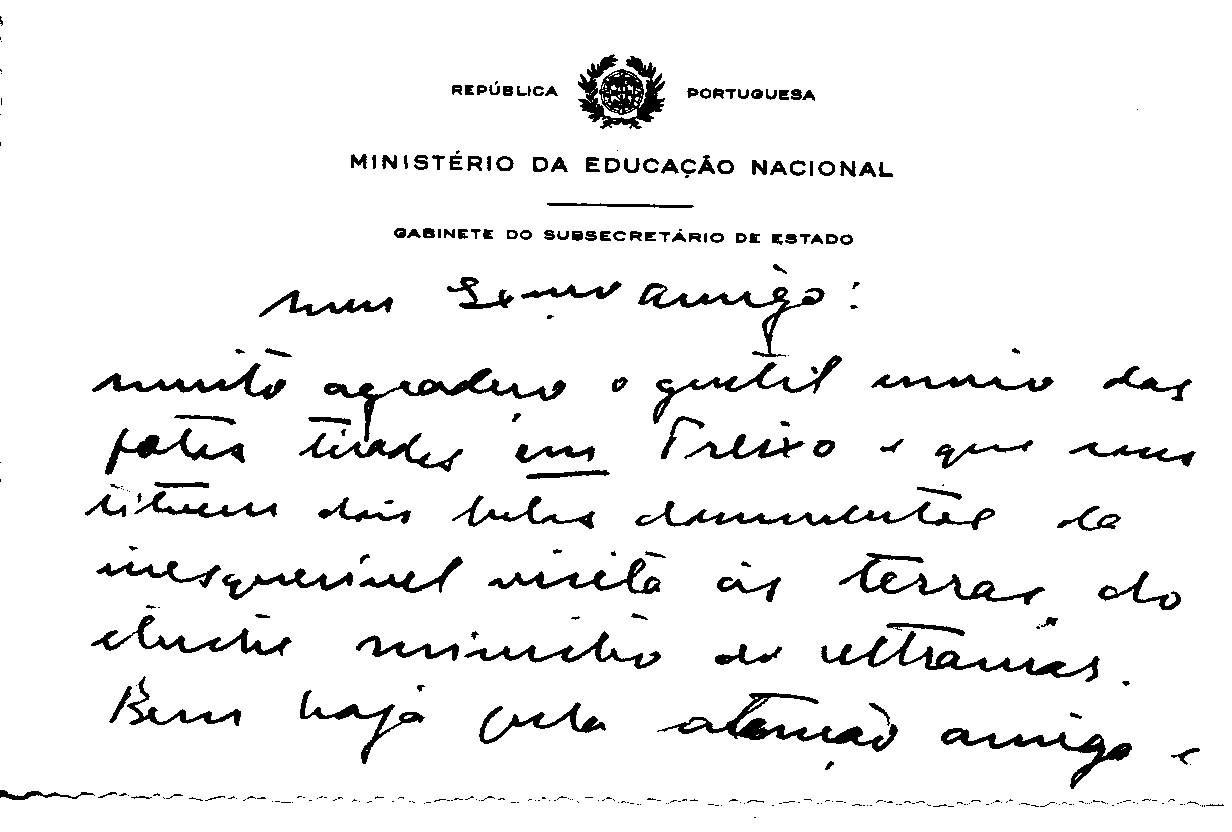 REPÚBLICA PORTUGUESA
MINISTÉRIO DA EDUCAÇÃO NACIONAL
GABINETE DO SUBSECRETÁRIO DE ESTADO
meu Exmo amigo:
muito agradeço o gentil envio das
fotos tiradas em Freixo e que cons
tituem dois belos documentos da
inesquecível visita às terras do
ilustre ministro do ultramar.
Bem haja pela atenção amiga e